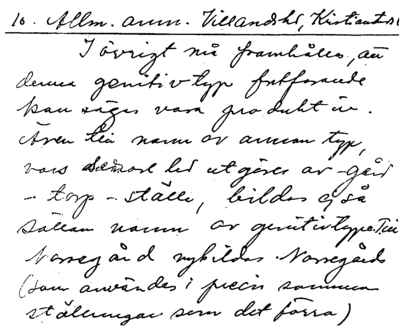 10. Allm. anm. Villands hd, Kristianst. l
I övrigt må framhålles, att
denna genitivtyp fortfarande
kan sägas vara produktiv.
Även till namn av annan typ,
vars senare led utgöres av -gård
-torp -ställe, bildas ej så
sällan namn av genitivtypen. Till
Norregård nybildas Norregårds
(som användes i precis samma
ställningar som det förra)